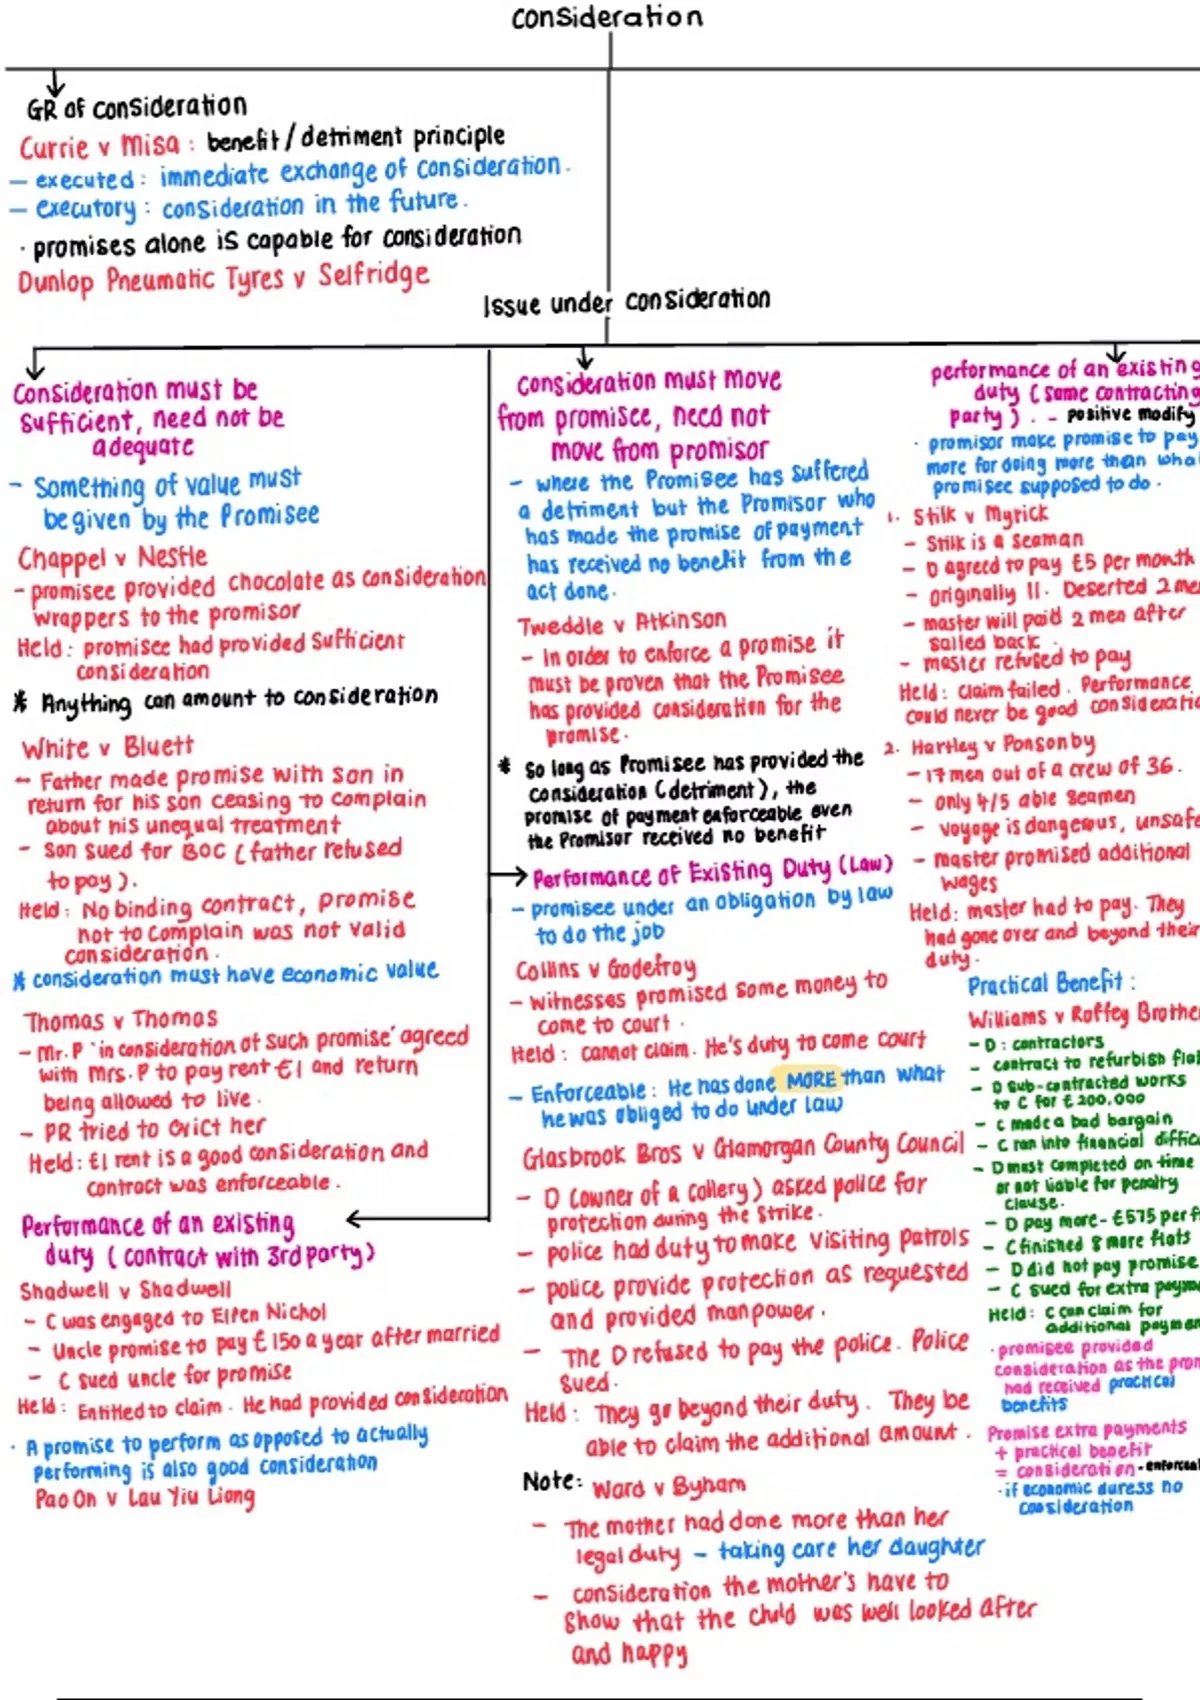 consideration
GR of consideration
Currie v Misa : benefit / detriment principle
– executed : immediate exchange of consideration.
– executory : consideration in the future.
· promises alone is capable for consideration
Dunlop Pneumatic Tyres v Selfridge
Issue under consideration
Consideration must be
sufficient, need not be
adequate
– Something of value must
be given by the Promisee
Chappel v Nestle
– promisee provided chocolate as consideration
wrappers to the promisor
Held : promisee had provided sufficient
consideration
* Anything can amount to consideration
White v Bluett
– Father made promise with son in
return for his son ceasing to complain
about his unequal treatment
– Son sued for BOC (father refused
to pay).
Held : No binding contract, promise
not to complain was not valid
consideration.
* consideration must have economic value
Thomas v Thomas
– Mr. P 'in consideration of such promise' agreed
with Mrs. P to pay rent £1 and return
being allowed to live.
– PR tried to evict her
Held : £1 rent is a good consideration and
contract was enforceable.
Performance of an existing
duty (contract with 3rd party)
Shadwell v Shadwell
– C was engaged to Ellen Nichol
– Uncle promise to pay £150 a year after married
– C sued uncle for promise
Held : Entitled to claim. He had provided consideration
· A promise to perform as opposed to actually
performing is also good consideration
Pao On v Lau Yiu Liong
consideration must move
from promisee, need not
move from promisor
– where the Promisee has suffered
a detriment but the Promisor who
has made the promise of payment
has received no benefit from the
act done.
Tweddle v Atkinson
– In order to enforce a promise it
must be proven that the Promisee
has provided consideration for the
promise.
* So long as Promisee has provided the
consideration (detriment), the
promise of payment enforceable even
the Promisor received no benefit
Performance of Existing Duty (Law)
– promisee under an obligation by law
to do the job
Collins v Godefroy
– Witnesses promised some money to
come to court.
Held : cannot claim. He's duty to come court
– Enforceable : He has done MORE than what
he was obliged to do under law
Glasbrook Bros v Glamorgan County Council
– D (owner of a collery) asked police for
protection during the strike.
– police had duty to make visiting patrols
– police provide protection as requested
and provided manpower.
– The D refused to pay the police. Police
sued.
Held : They go beyond their duty. They be
able to claim the additional amount.
Note: Ward v Byham
– The mother had done more than her
legal duty – taking care her daughter
– consideration the mother's have to
show that the child was well looked after
and happy
performance of an existing
duty (same contracting
party). – positive modify
· promisor make promise to pay
more for doing more than wha
promisee supposed to do.
1. Stilk v Myrick
– Stilk is a seaman
– D agreed to pay £5 per month
– originally 11. Deserted 2 me
– master will paid 2 men after
sailed back.
– master refused to pay
Held : claim failed. Performance
could never be good consideratio
2. Hartley v Ponsonby
– 17 men out of a crew of 36.
– only 4/5 able seamen
– voyage is dangerous, unsafe
– master promised additional
wages
Held : master had to pay. They
had gone over and beyond their
duty.
Practical Benefit :
Williams v Roffey Brother
– D : contractors
– contract to refurbish fla
– D sub-contracted works
to C for £200,000
– C made a bad bargain
– C ran into financial diffic
– D must completed on time
or not liable for penalty
clause.
– D pay more - £575 per f
– C finished 8 more flats
– D did not pay promise
– C sued for extra payme
Held : C can claim for
additional paymen
· promisee provided
consideration as the prom
had received practical
benefits
Promise extra payments
+ practical benefit
= consideration - enforceab
· if economic duress no
consideration